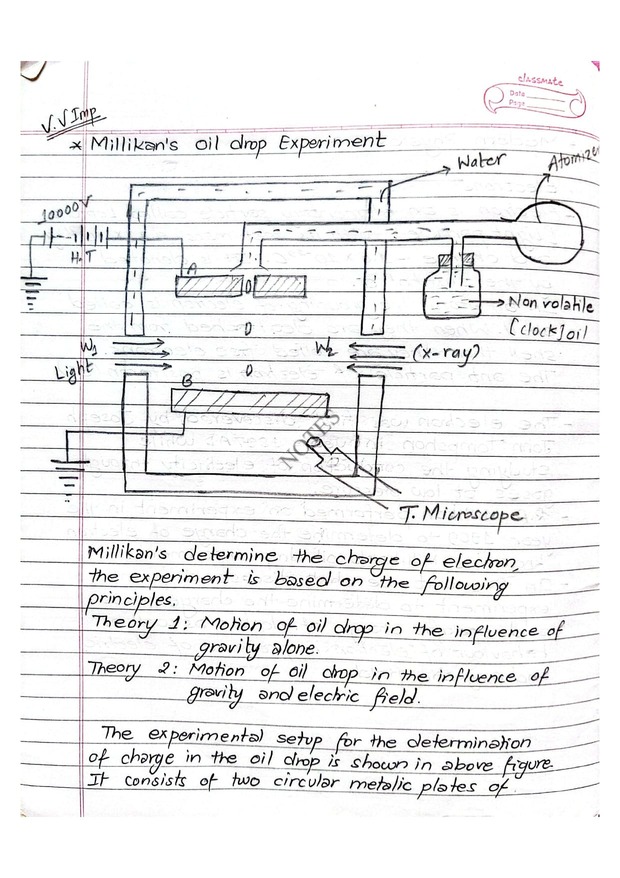 classmate
Date
Page
V.V Imp
* Millikan's oil drop Experiment
Water
Atomizer
10000V
H.T
A
Non volatile
[clock] oil
W1
Light
W2
(x-ray)
B
NOTES
T. Microscope
Millikan's determine the charge of electron,
the experiment is based on the following
principles.
Theory 1: Motion of oil drop in the influence of
gravity alone.
Theory 2: Motion of oil drop in the influence of
gravity and electric field.
The experimental setup for the determination
of charge in the oil drop is shown in above figure.
It consists of two circular metalic plates of